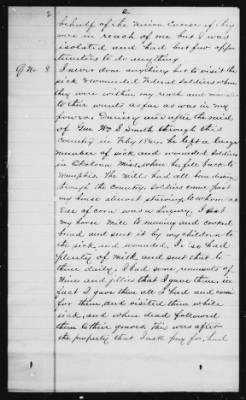 2
behalf of the Union Cause if they
were in reach of me but I was
isolated and had but few oppor
tunities to do anything
I never done anything but to visit the
sick & wounded Federal Soldiers when
they were within my reach and minister
to their wants as far as was in my
power. During and after the raid
of Gen Wm S Smith through this
Country in Feby 1864, he left a large
number of sick and wounded soldiers
in Okolona Miss, when he fell back to
Memphis. The Mills had all been burned
through the Country. Soldiers came past
my house almost starving to whom an
Ear of corn was a luxury, I kept
my horse Mill a running and cooked
bread and sent it by my children to
the sick and wounded. I also had
plenty of Milk and sent that to
them daily, I had some remnants of
Wines and jellies that I gave them, in
fact I gave them all I had and cared
for them, and visited them while
sick, and when dead followed
them to their graves. This was after
the property that I ask pay for, had